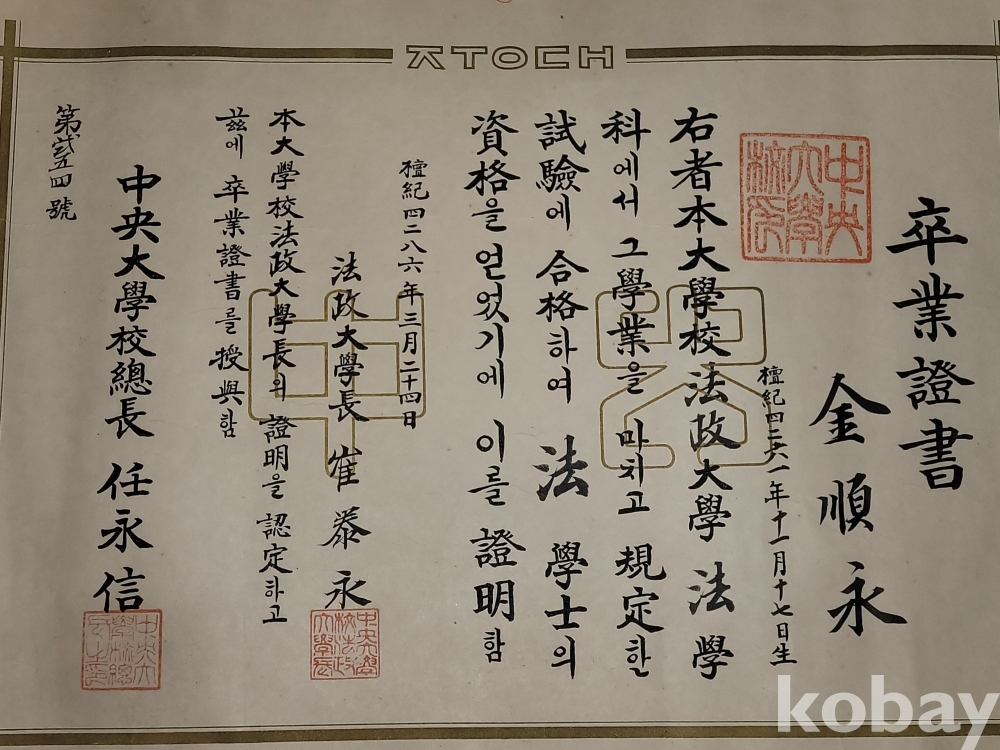 卒業證書
金順永
檀紀四二六一年十一月十七日生
右者本大學校法政大學 法學
科에서 그學業을 마치고 規定한
試驗에 合格하여 法 學士의
資格을 얻었기에 이를 證明함
檀紀四二八六年三月二十四日
法政大學長 崔泰永
本大學校法政大學長의 證明을 認定하고
玆에 卒業證書를 授與함
中央大學校總長 任永信
第 五四號
中央大學校印
kobay